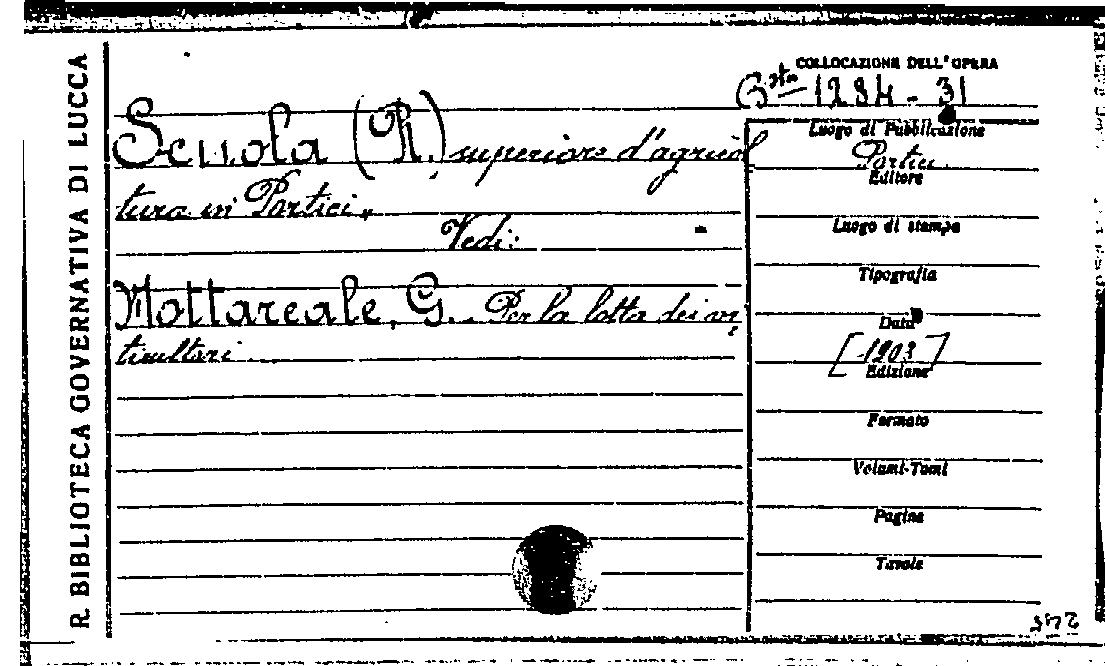 R. BIBLIOTECA GOVERNATIVA DI LUCCA
COLLOCAZIONE DELL'OPERA
Bta 1284-31
Scuola (R.) superiore d'agricol
tura in Portici.
Vedi:
Mottareale, G. Per la lotta dei vi
ticultori
Luogo di Pubblicazione
Portici
Editore
Luogo di stampa
Tipografia
Data
[1903]
Edizione
Formato
Volumi-Tomi
Pagine
Tavole